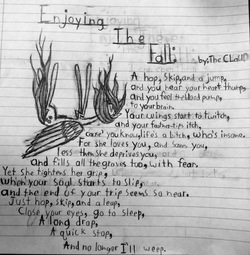 Enjoying
The
Fall;
by: The Clown
A hop, skip, and a jump,
and you hear your heart thump,
and you feel the blood pump,
to your brain.
Your wings start to twitch,
and your itch,
cause' you know, life's a bitch, who's insane.
For she loves you, and saves you,
less then she deprives you,
and fills all the graves too, with fear.
Yet she tightens her grip,
when your soul starts to slip,
and the end of your trip seems so near.
Just hop, skip, and a leap,
Close your eyes, go to sleep,
A long drop,
A quick stop,
And no longer I'll weep.